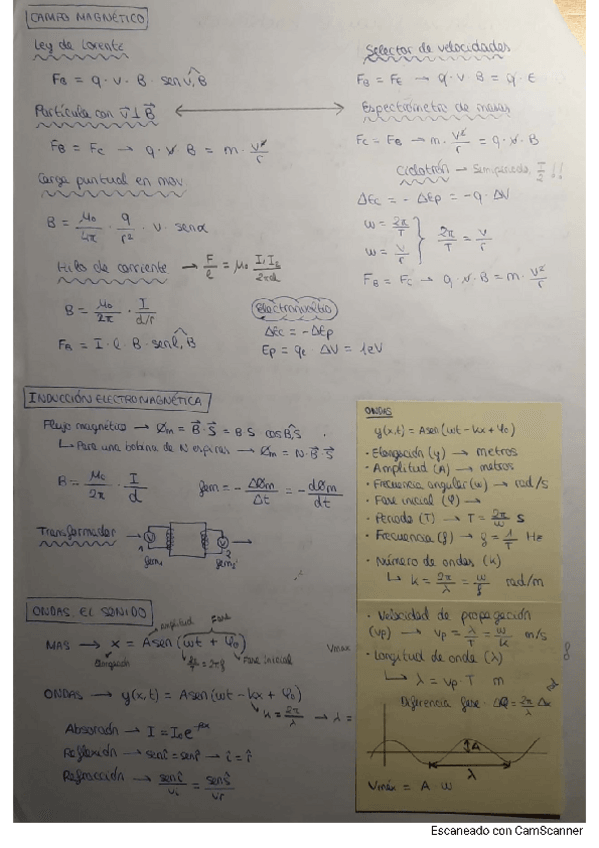 CAMPO MAGNÉTICO
Ley de Lorentz
F_B = q · v · B · sen v̂,B
Partícula con v⃗ ⊥ B⃗
F_B = F_C → q · v · B = m · v²/r
Carga puntual en mov
B = μ₀/4π · q/r² · v · senα
Hilo de corriente → F/l = μ₀ I₁I₂/2πd
B = μ₀/2π · I/d/r
F_B = I · l · B · sen l̂,B
Selector de velocidades
F_B = F_E → q · v · B = q · E
Espectrómetro de masas
F_C = F_B → m · v²/r = q · v · B
Ciclotrón → Semiperiodo, T/2 !!
ΔEc = - ΔEp = -q · ΔV
w = 2π/T
w = v/r
2π/T = v/r
F_B = F_C → q · v · B = m · v²/r
Electronvoltio
ΔEc = -ΔEp
Ep = qe · ΔV = 1eV
INDUCCIÓN ELECTROMAGNÉTICA
Flujo magnético → Øm = B⃗ · S⃗ = B S cos B̂,S
↳ Para una bobina de N espiras → Øm = N · B⃗ · S⃗
B = μ₀/2π · I/d
fem = - ΔØm/Δt = - dØm/dt
Transformador →
1
fem₁
2
fem₂
ONDAS. EL SONIDO
amplitud
Fase
MAS → x = A sen (wt + φ₀)
Elongación
Fase inicial
ONDAS → y(x,t) = A sen (wt - kx + φ₀)
↳ k = 2π/λ → λ =
Absorción → I = I₀e^-βx
Reflexión → sen î = sen r̂ → î = r̂
Refracción → sen î/vi = sen r̂/vr
Vmax
ONDAS
y(x,t) = A sen (wt - kx + φ₀)
· Elongación (y) → metros
· Amplitud (A) → metros
· Frecuencia angular (w) → rad/s
· Fase inicial (φ) →
· Periodo (T) → T = 2π/w s
· Frecuencia (f) → f = 1/T Hz
· Número de ondas (k)
↳ k = 2π/λ = w/v rad/m
· Velocidad de propagación
(vp) → vp = λ/T = w/k m/s
· Longitud de onda (λ)
↳ λ = vp · T m
Diferencia fase · Δφ = 2π/λ Δx
A
λ
Vmáx = A · w
Escaneado con CamScanner